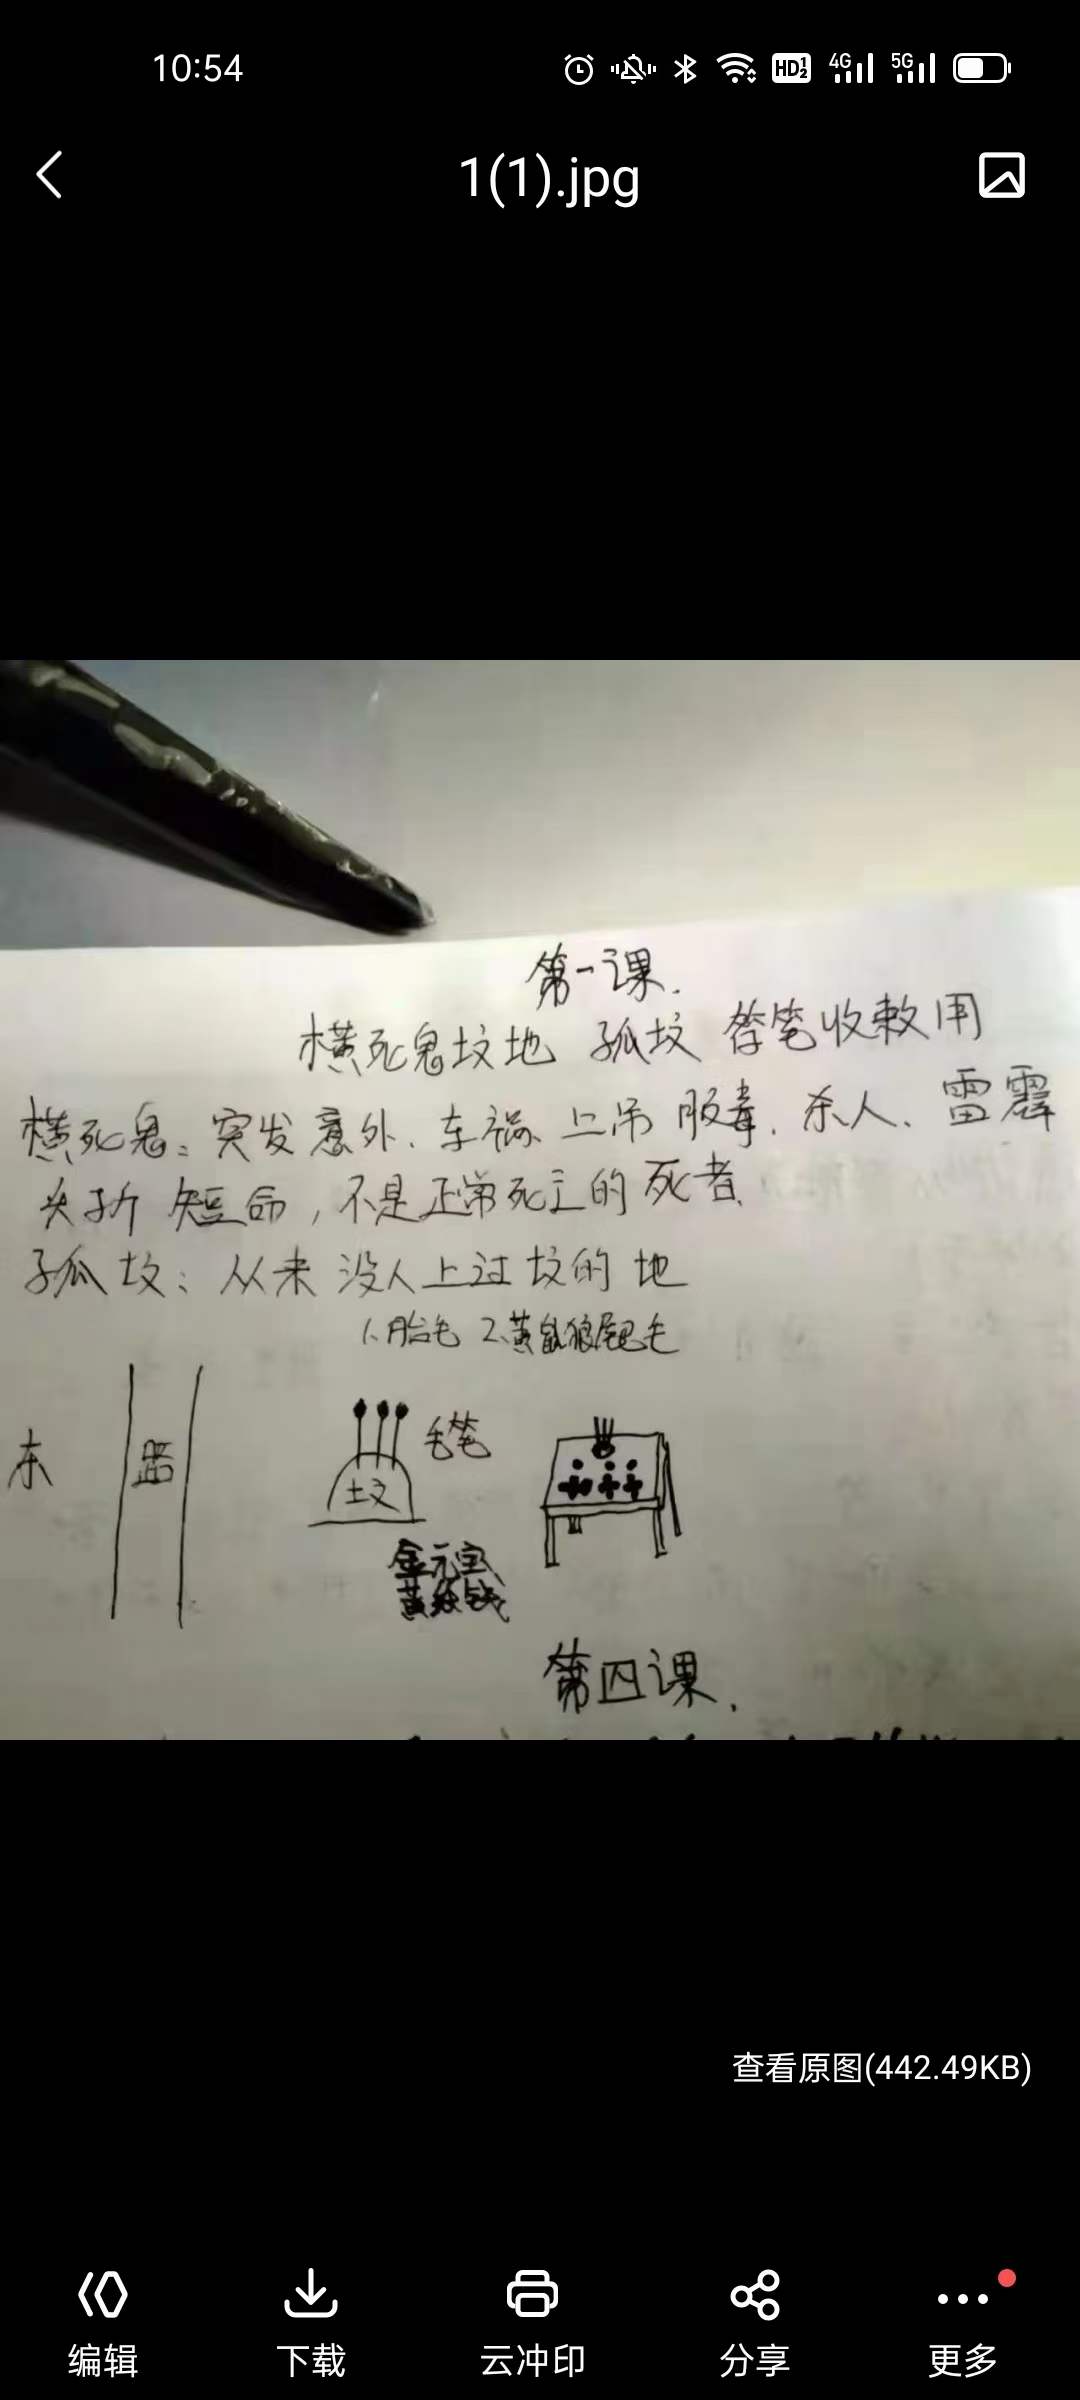 10:54
HD 1 2 4G 5G
1(1).jpg
第一课.
横死鬼坟地 孤坟 笔收敕用
横死鬼: 突发意外、车祸 上吊 服毒、杀人、雷霹
夭折 短命, 不是正常死亡的死者.
孤坟: 从来没人上过坟的地
1、胎毛 2、黄鼠狼尾毛
东
路
坟
毛笔
金元宝
黄纸钱
第四课.
查看原图(442.49KB)
编辑 下载 云冲印 分享 更多